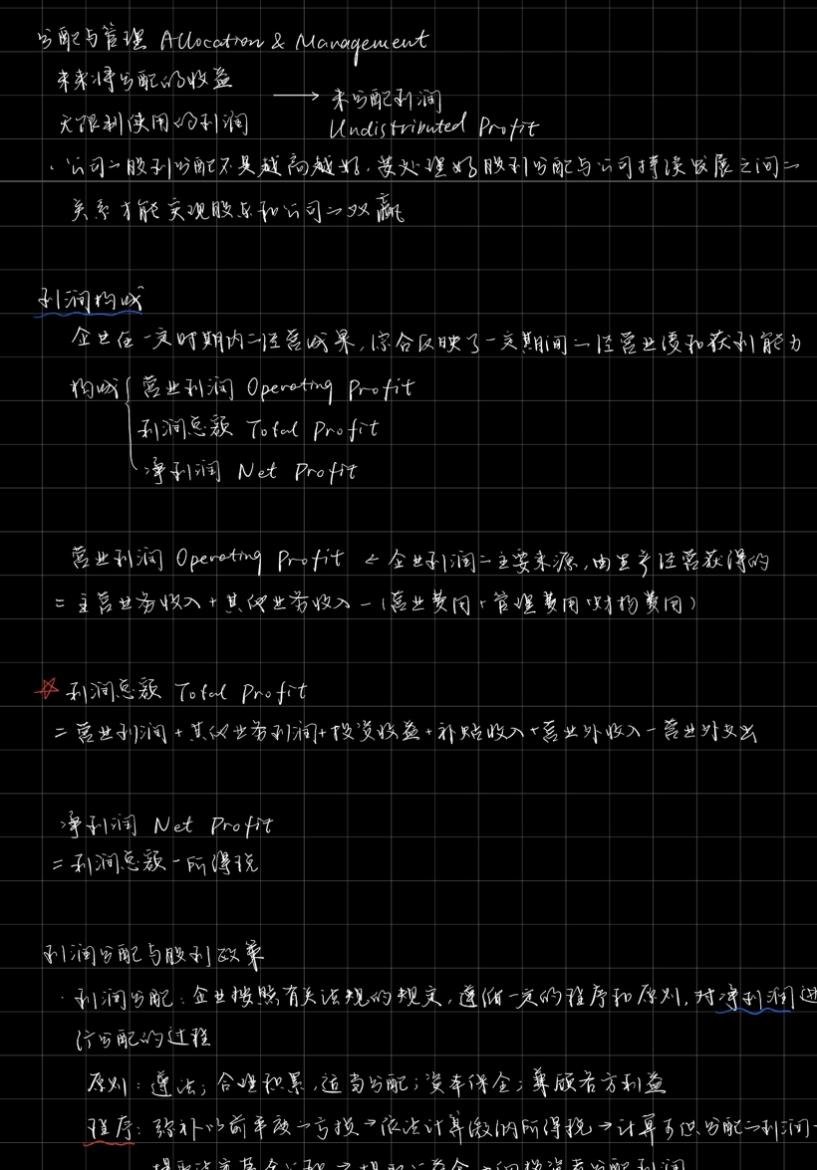 分配与管理 Allocation & Management
未来将分配的收益
无限制使用的利润
→ 未分配利润
Undistributed Profit
· 公司二股利分配不是越高越好，要处理好股利分配与公司持续发展之间二
关系才能实现股东和公司二双赢
利润构成
企业在一定时期内二经营成果，综合反映了一定期间二经营业绩和获利能力
构成{ 营业利润 Operating Profit
利润总额 Total Profit
净利润 Net Profit
营业利润 Operating Profit ← 企业利润二主要来源，由生产经营获得的
= 主营业务收入 + 其他业务收入 - (营业费用 + 管理费用 + 财务费用)
☆ 利润总额 Total Profit
= 营业利润 + 其他业务利润 + 投资收益 + 补贴收入 + 营业外收入 - 营业外支出
净利润 Net Profit
= 利润总额 - 所得税
利润分配与股利政策
· 利润分配：企业按照有关法规的规定，遵循一定的程序和原则，对净利润进
行分配的过程
原则：遵法；合理积累，适当分配；资本保全；兼顾各方利益
程序：弥补以前年度一亏损→依法计算缴纳所得税→计算可供分配二利润→